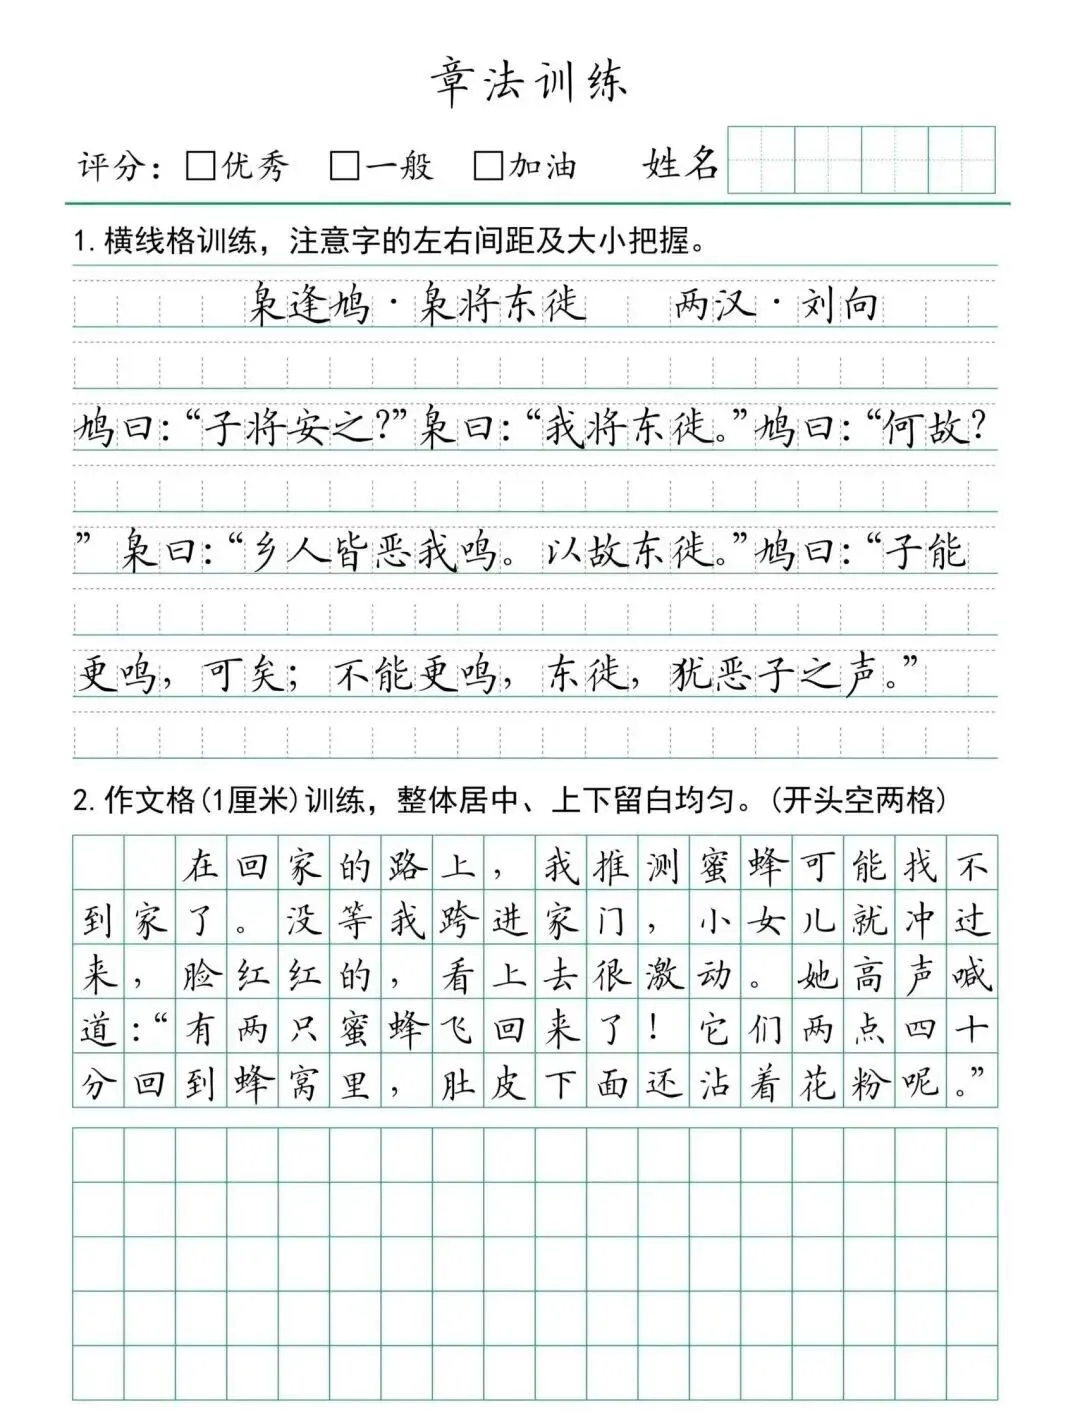 章法训练
评分：□优秀 □一般 □加油 姓名
1.横线格训练，注意字的左右间距及大小把握。
枭逢鸠·枭将东徙 两汉·刘向
鸠曰：“子将安之？”枭曰：“我将东徙。”鸠曰：“何故？
” 枭曰：“乡人皆恶我鸣。以故东徙。”鸠曰：“子能
更鸣，可矣；不能更鸣，东徙，犹恶子之声。”
2.作文格(1厘米)训练，整体居中、上下留白均匀。(开头空两格)
在回家的路上，我推测蜜蜂可能找不
到家了。没等我跨进家门，小女儿就冲过
来，脸红红的，看上去很激动。她高声喊
道：“有两只蜜蜂飞回来了！它们两点四十
分回到蜂窝里，肚皮下面还沾着花粉呢。”